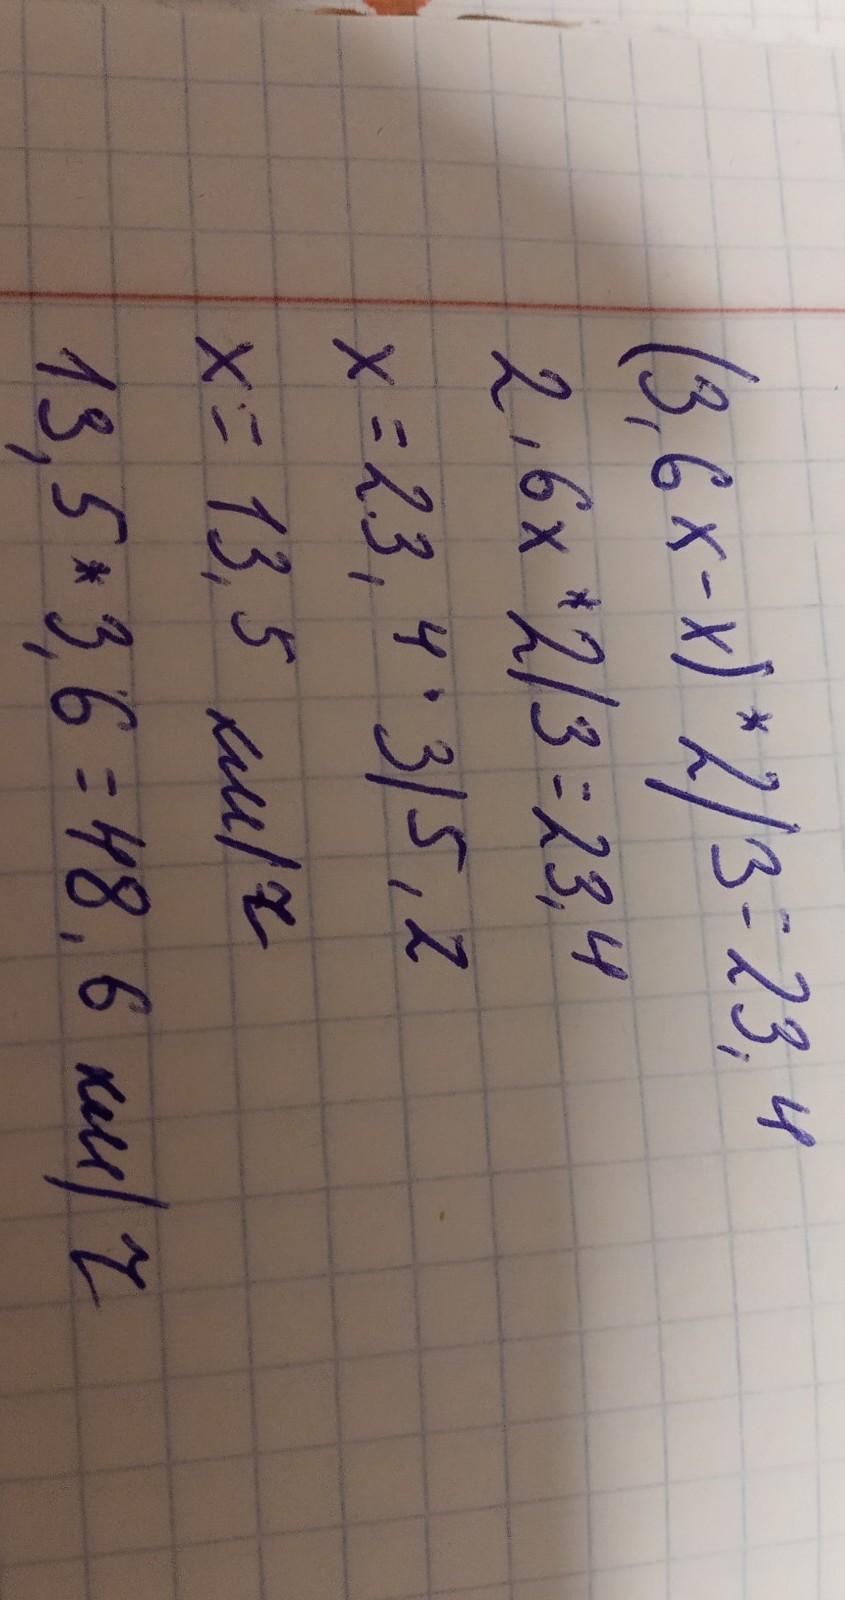 (3,6x-x)*2/3=23,4
2,6x*2/3=23,4
x=23,4·3/5,2
x=13,5 км/ч
13,5*3,6=48,6 км/ч